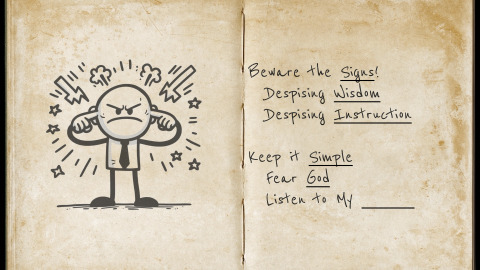 Beware the Signs!
Despising Wisdom
Despising Instruction
Keep it Simple
Fear God
Listen to My ______